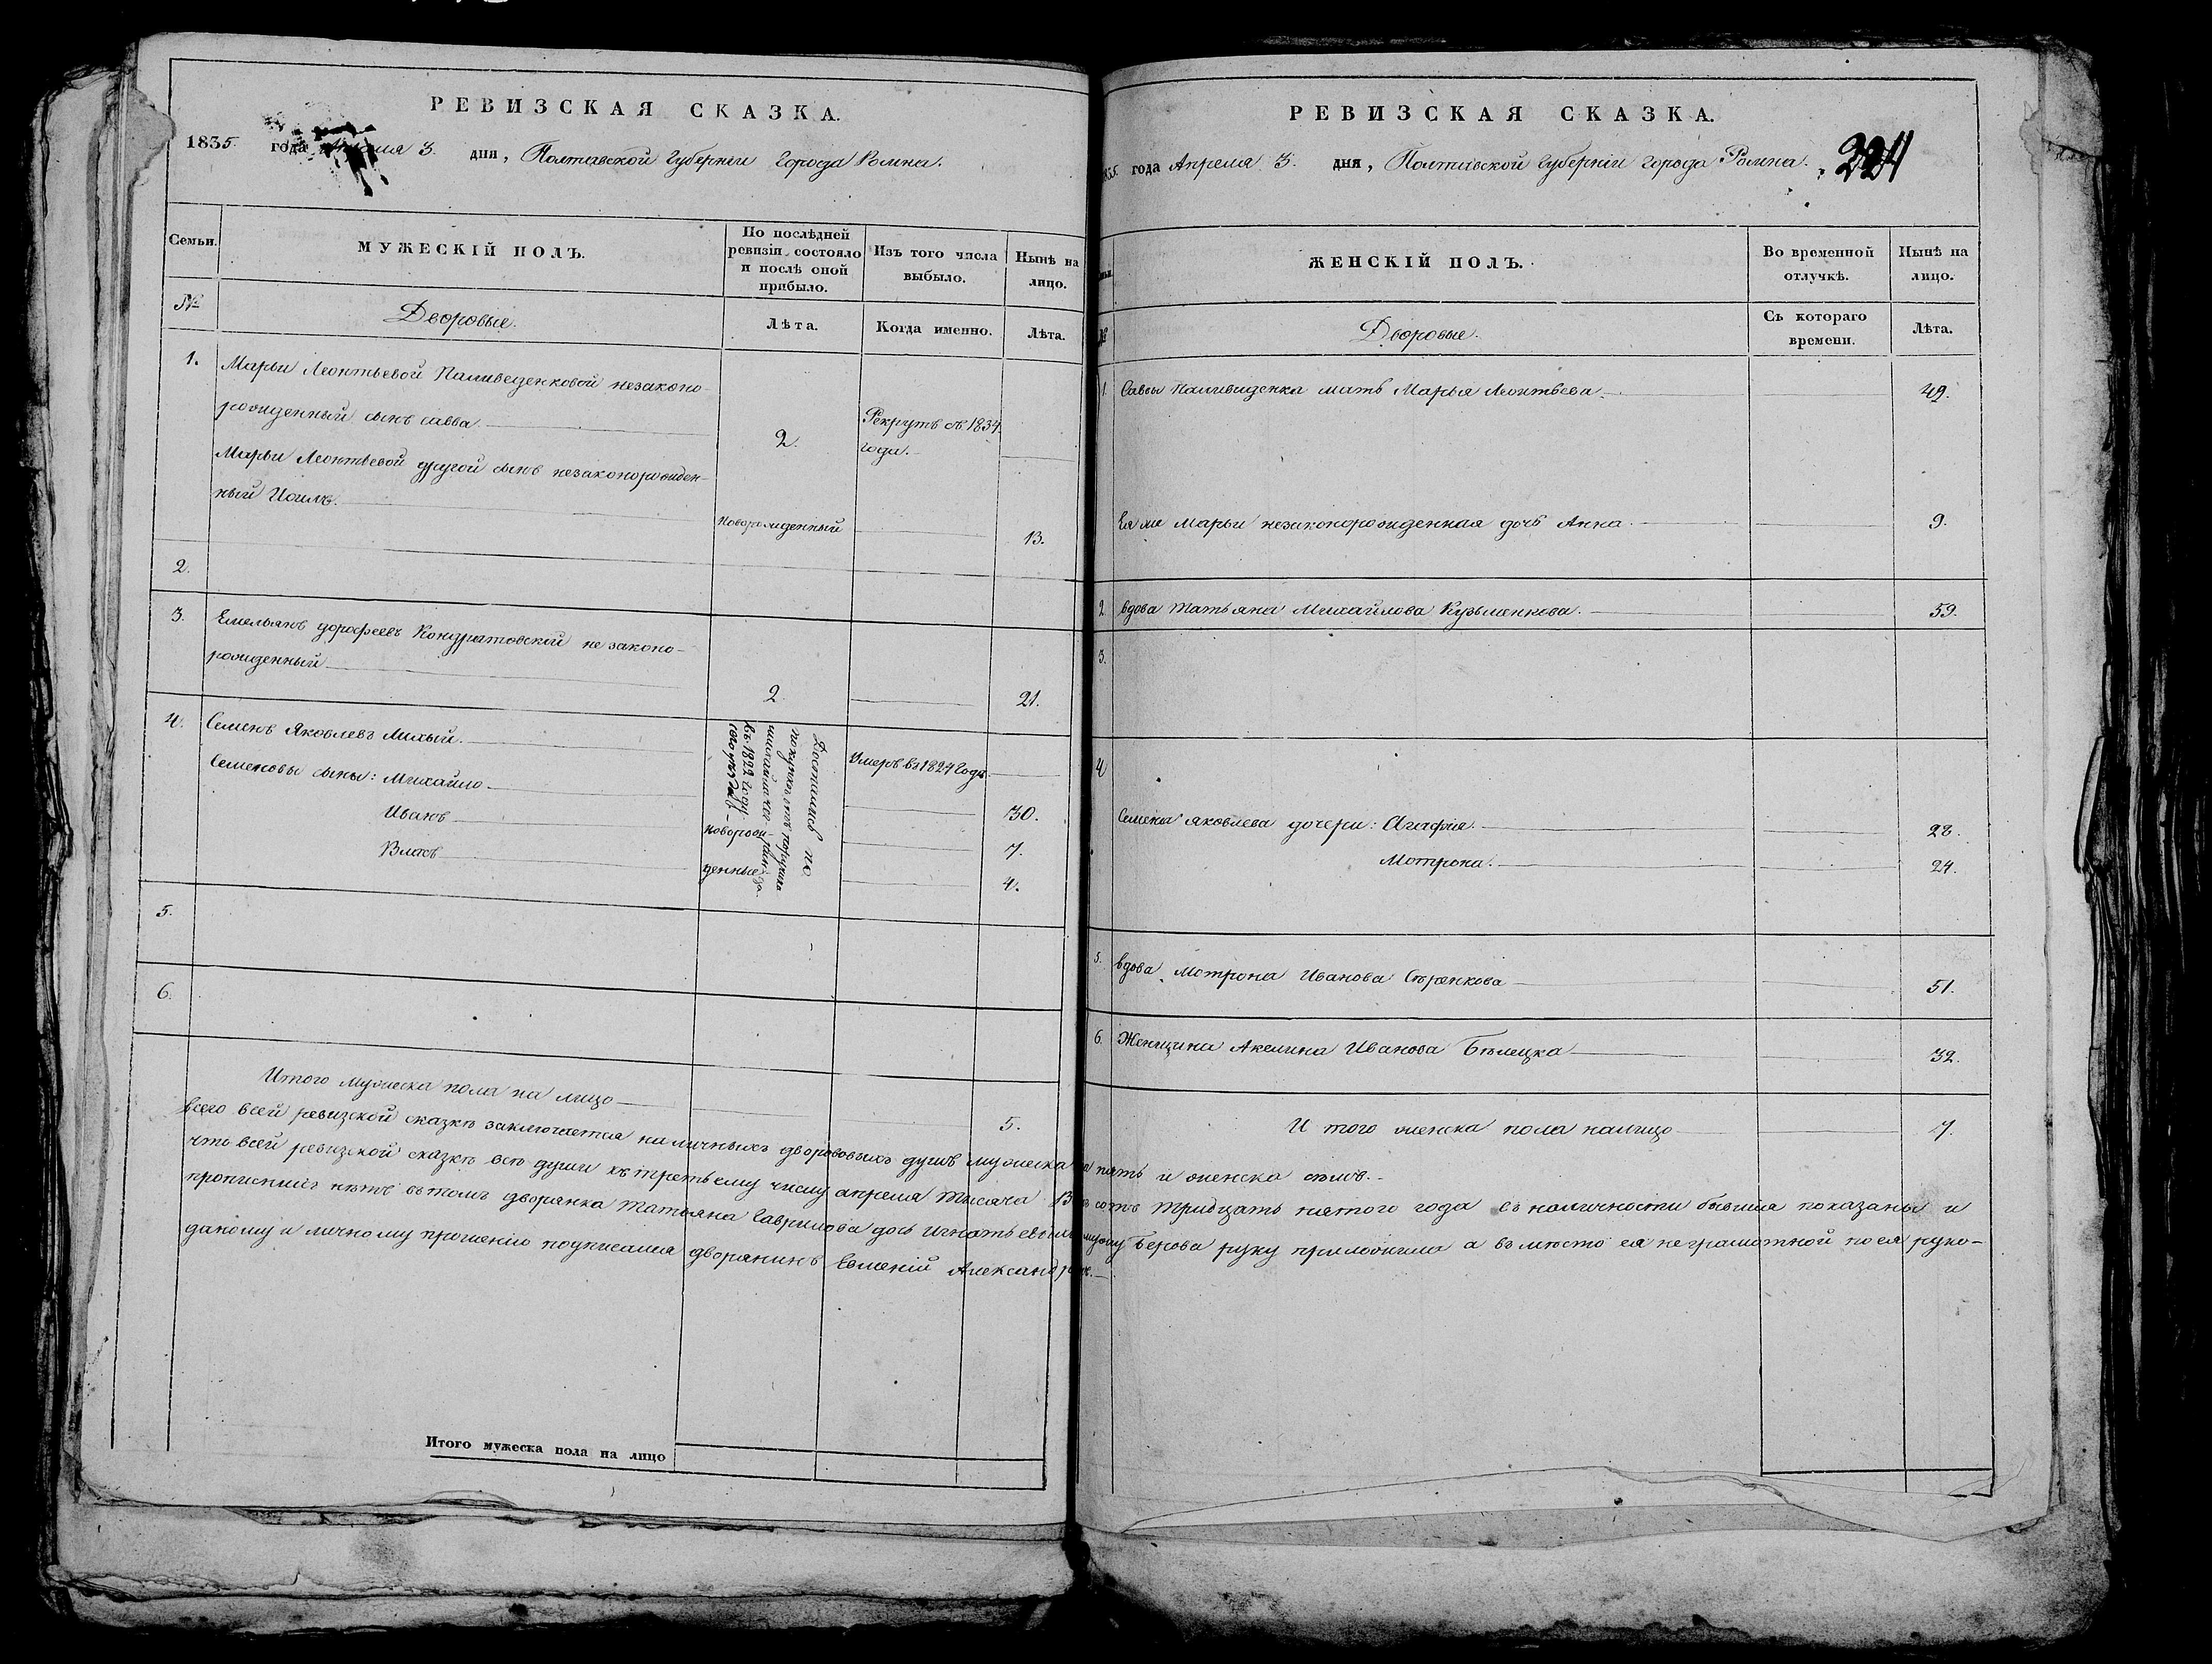 РЕВИЗСКАЯ СКАЗКА.
1835 года Апреля 3. дня, Полтавской Губерніи города Ромна.
Семьи.
МУЖЕСКІЙ ПОЛЪ.
По послѣдней ревизіи состояло и послѣ оной прибыло.
Изъ того числа выбыло.
Нынѣ на лицо.
№
Дворовые.
Лѣта.
Когда именно.
Лѣта.
1. Марьи Леонтьевой Паливоденковой незаконо-
рожденный сынъ савва 2. Рекрутъ съ 1834.
года.
Марьи Леонтьевой другой сынъ незаконорожден-
ный новорожденный 13.
2.
3. Емельянъ дорофеевъ Кондратовскій незаконо-
рожденный 2 21.
4. Семенъ Яковлевъ Михый. Умеръ въ 1824 Годе
Семеновы сыны: Михайло 30.
Иванъ новорож- 7.
Власъ денные 4.
Достались по
покупке отъ
въ 1822 году
5.
6.
Итого мужеска пола на лицо 5.
РЕВИЗСКАЯ СКАЗКА.
1835 года Апреля 3. дня, Полтавской Губерніи города Ромна. 224
ЖЕНСКІЙ ПОЛЪ.
Во временной отлучкѣ.
Нынѣ на лицо.
№
Дворовые.
Съ котораго времени.
Лѣта.
1. Саввы Паливоденка мать Марья Леонтьева. 49.
Ея же Марьи незаконорожденная дочь Анна 9.
2. вдова Татьяна Михайлова Кузьменкова. 59.
3.
4 Семена Яковлева дочери: Агафия. 28.
Мотрона. 24.
5. вдова Мотрона Иванова Сѣренкова 51.
6. Женщина Акелина Иванова Бѣлецка 32.
И того женска пола налицо 7.
всего всей ревизской сказкѣ заключается наличныхъ дворововыхъ душъ мужеска пять и женска семь.
что всей ревизской сказкѣ всѣ души къ третьему числу апреля тысяча сотъ тридцать пятого года въ наличности бывшiя показаны и
прописныхъ нѣтъ въ томъ дворянка Татьяна Гаврилова дочь мужу Берова руку приложила а въ место ея неграмотной по ея руко-
даному и личному прошенію подписался дворянинъ Евменій
Итого мужеска пола на лицо